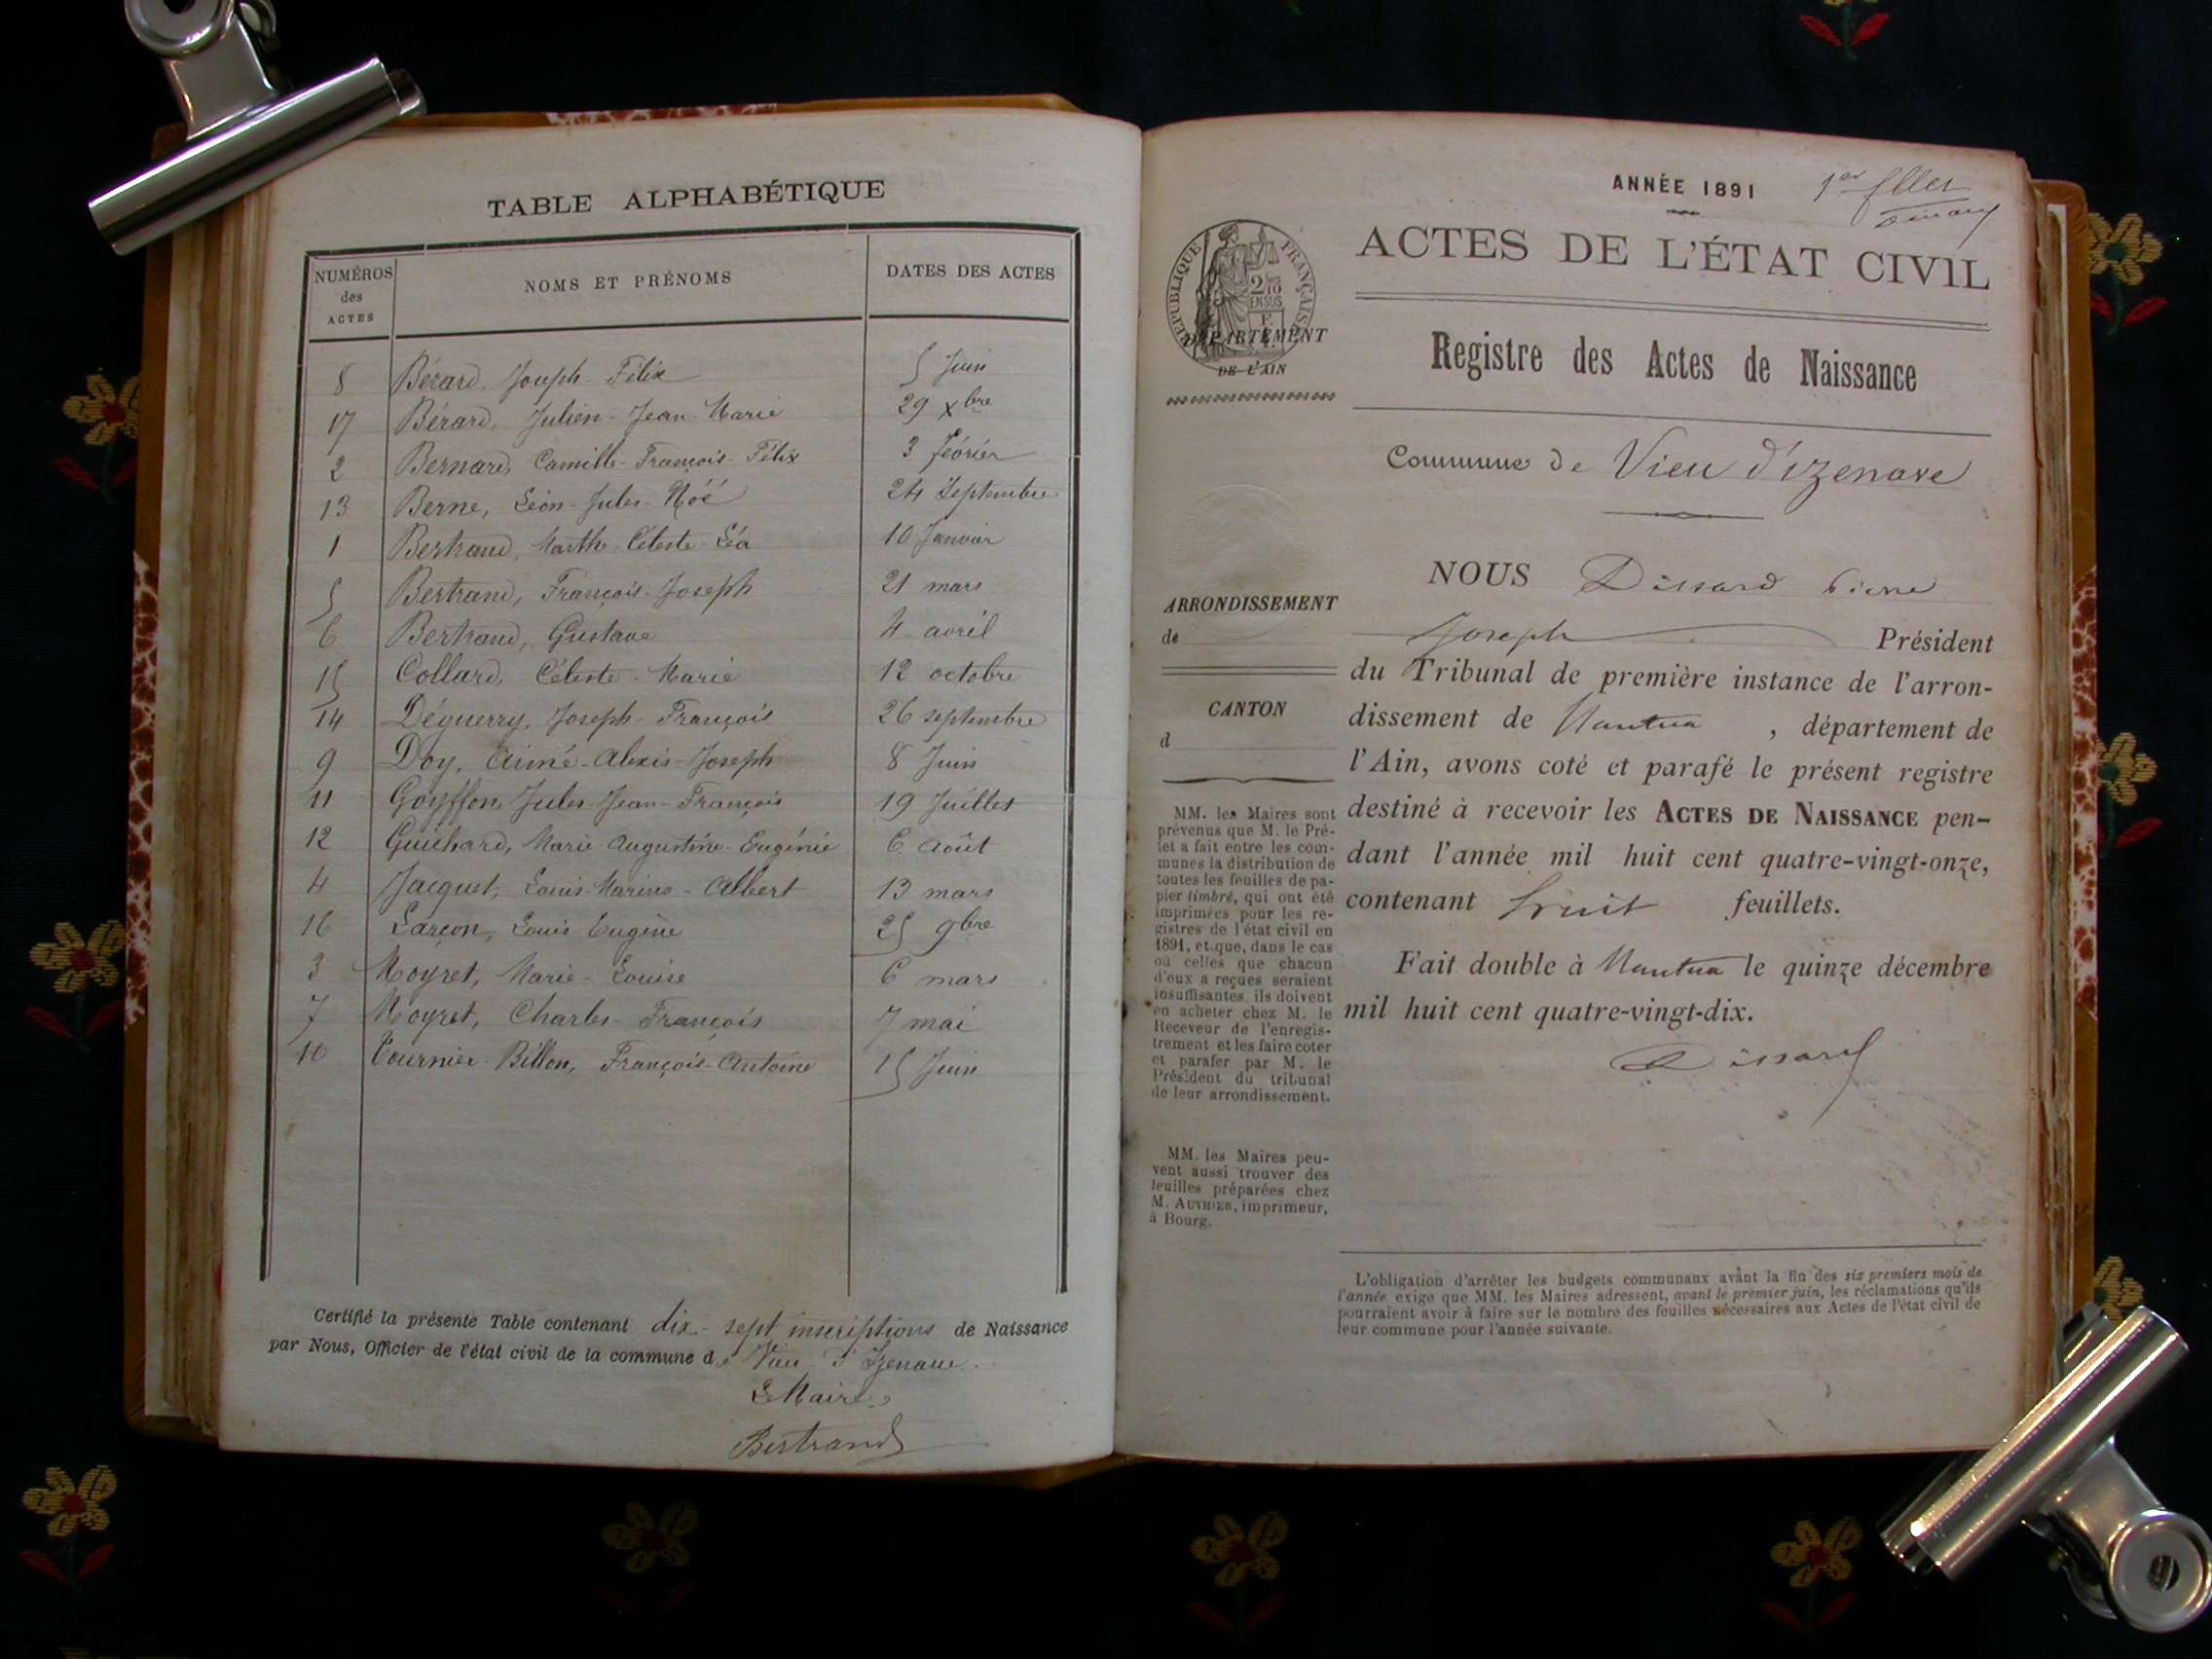 TABLE ALPHABÉTIQUE
NUMÉROS des ACTES NOMS ET PRÉNOMS DATES DES ACTES
8 Bérard, Joseph-Félix 5 Juin
17 Bérard, Julien-Jean-Marie 29 Xbre
2 Bernard, Camille-François-Félix 3 février
13 Berne, Léon-Jules-Noé 24 Septembre
1 Bertrand, Marthe-Céleste-Léa 10 Janvier
5 Bertrand, François-Joseph 21 mars
6 Bertrand, Gustave 4 avril
15 Collard, Céleste-Marie 12 octobre
14 Déguerry, Joseph-François 26 septembre
9 Doy, Aimé-Alexis-Joseph 8 Juin
11 Goyffon, Jules-Jean-François 19 Juillet
12 Guichard, Marie-Augustine-Eugénie 6 Août
4 Jacquet, Louis-Marius-Albert 13 mars
16 Larçon, Louis Eugène 25 9bre
3 Moyret, Marie-Louise 6 mars
7 Moyret, Charles-François 7 mai
10 Tournier-Billon, François-Antoine 15 Juin
Certifié la présente Table contenant dix-sept inscriptions de Naissance
par Nous, Officier de l'état civil de la commune de Vieu-d'Izenave.
Le Maire,
Bertrand
ANNÉE 1891
1er
ACTES DE L'ÉTAT CIVIL
RÉPUBLIQUE FRANÇAISE
2/10
EN SUS
DÉPARTEMENT
DE L'AIN
Registre des Actes de Naissance
Commune de Vieu d'izenave
ARRONDISSEMENT
de
CANTON
d
MM. les Maires sont
prévenus que M. le Pré-
fet a fait entre les com-
munes la distribution de
toutes les feuilles de pa-
pier timbré, qui ont été
imprimées pour les re-
gistres de l'état civil en
1891, et que, dans le cas
où celles que chacun
d'eux a reçues seraient
insuffisantes, ils doivent
en acheter chez M. le
Receveur de l'enregis-
trement et les faire coter
et parafer par M. le
Président du tribunal
de leur arrondissement.
MM. les Maires peu-
vent aussi trouver des
feuilles préparées chez
M. AUTHIER, imprimeur,
à Bourg.
NOUS Dissard Pierre
Joseph Président
du Tribunal de première instance de l'arron-
dissement de Nantua , département de
l'Ain, avons coté et parafé le présent registre
destiné à recevoir les ACTES DE NAISSANCE pen-
dant l'année mil huit cent quatre-vingt-onze,
contenant huit feuillets.
Fait double à Nantua le quinze décembre
mil huit cent quatre-vingt-dix.
Dissard
L'obligation d'arrêter les budgets communaux avant la fin des six premiers mois de
l'année exige que MM. les Maires adressent, avant le premier juin, les réclamations qu'ils
pourraient avoir à faire sur le nombre des feuilles nécessaires aux Actes de l'état civil de
leur commune pour l'année suivante.